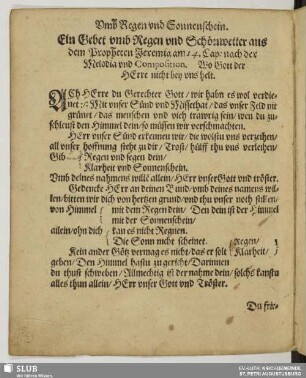 Vmb Regen vnd Sonnenschein.
Ein Gebet vmb Regen vnd Schönwetter aus
dem Propheten Jeremia am 14. Cap: nach der
Melodia vnd Composition. Wo Gott der
HErre nicht bey vns helt.
ACh HErre du Gerechter Gott / wir habn es wol verdie-
net :/: Mit vnser Sünd vnd Missethat / das vnser Feld nit
grünet / das menschen vnd vieh trawrig sein / wen du zu-
schleust den Himmel dein / so müssen wir verschmachten.
HErr vnser Sünd erkennen wir / die wollstu vns verzeihen /
all vnser hoffnung steht zu dir / Trost / hülff thu vns verleihen /
Gib Regen vnd segen dein /
Klarheit vnd Sonnenschein.
Vmb deines nahmens willē allein / HErr vnser Gott vnd tröster.
Gedencke HErr an deinen Bund / vmb deines namens wil-
len / bitten wir dich von hertzen grund / vnd thu vnser noth stillen /
von Himmel mit dem Regen dein / Den dein ist der Himmel
mit der Sonnenschein.
allein / ohn dich kan es nicht Regnen.
Die Sonn nicht scheinet. regen /
Kein ander Götz vermag es nicht / das er solt Klarheit /
geben / Den Himmel hastu zugericht / Darinnen
du thust schweben / Allmechtig ist der nahme dein / solchs kanstu
alles thun allein / HErr vnser Gott vnd Tröster.
Du frie-
SLUB
Wir führen Wissen.
EV.-LUTH. KIRCHGEMEINDE
ST. PETRI AUGUSTUSBURG